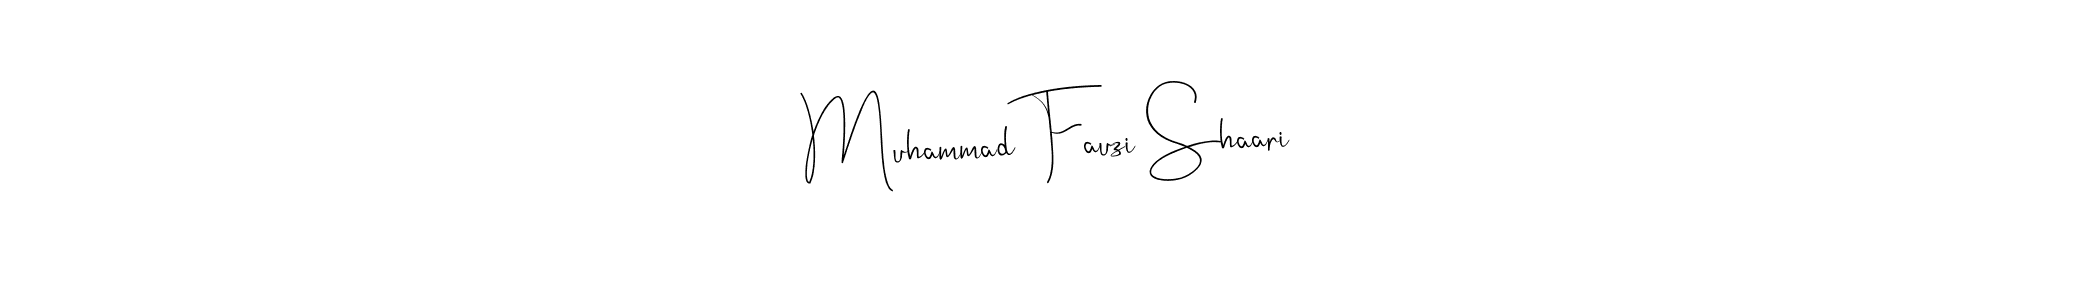 Muhammad Fauzi Shaari